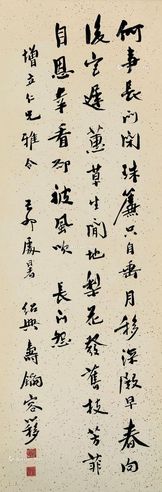 何事長門閉珠簾只自垂月移深殿早春向
後宮遲蕙草生閒地梨花發舊枝芳菲
自恩幸看卻被風吹 長門怨
仁兄雅令 卯處暑 紹興壽